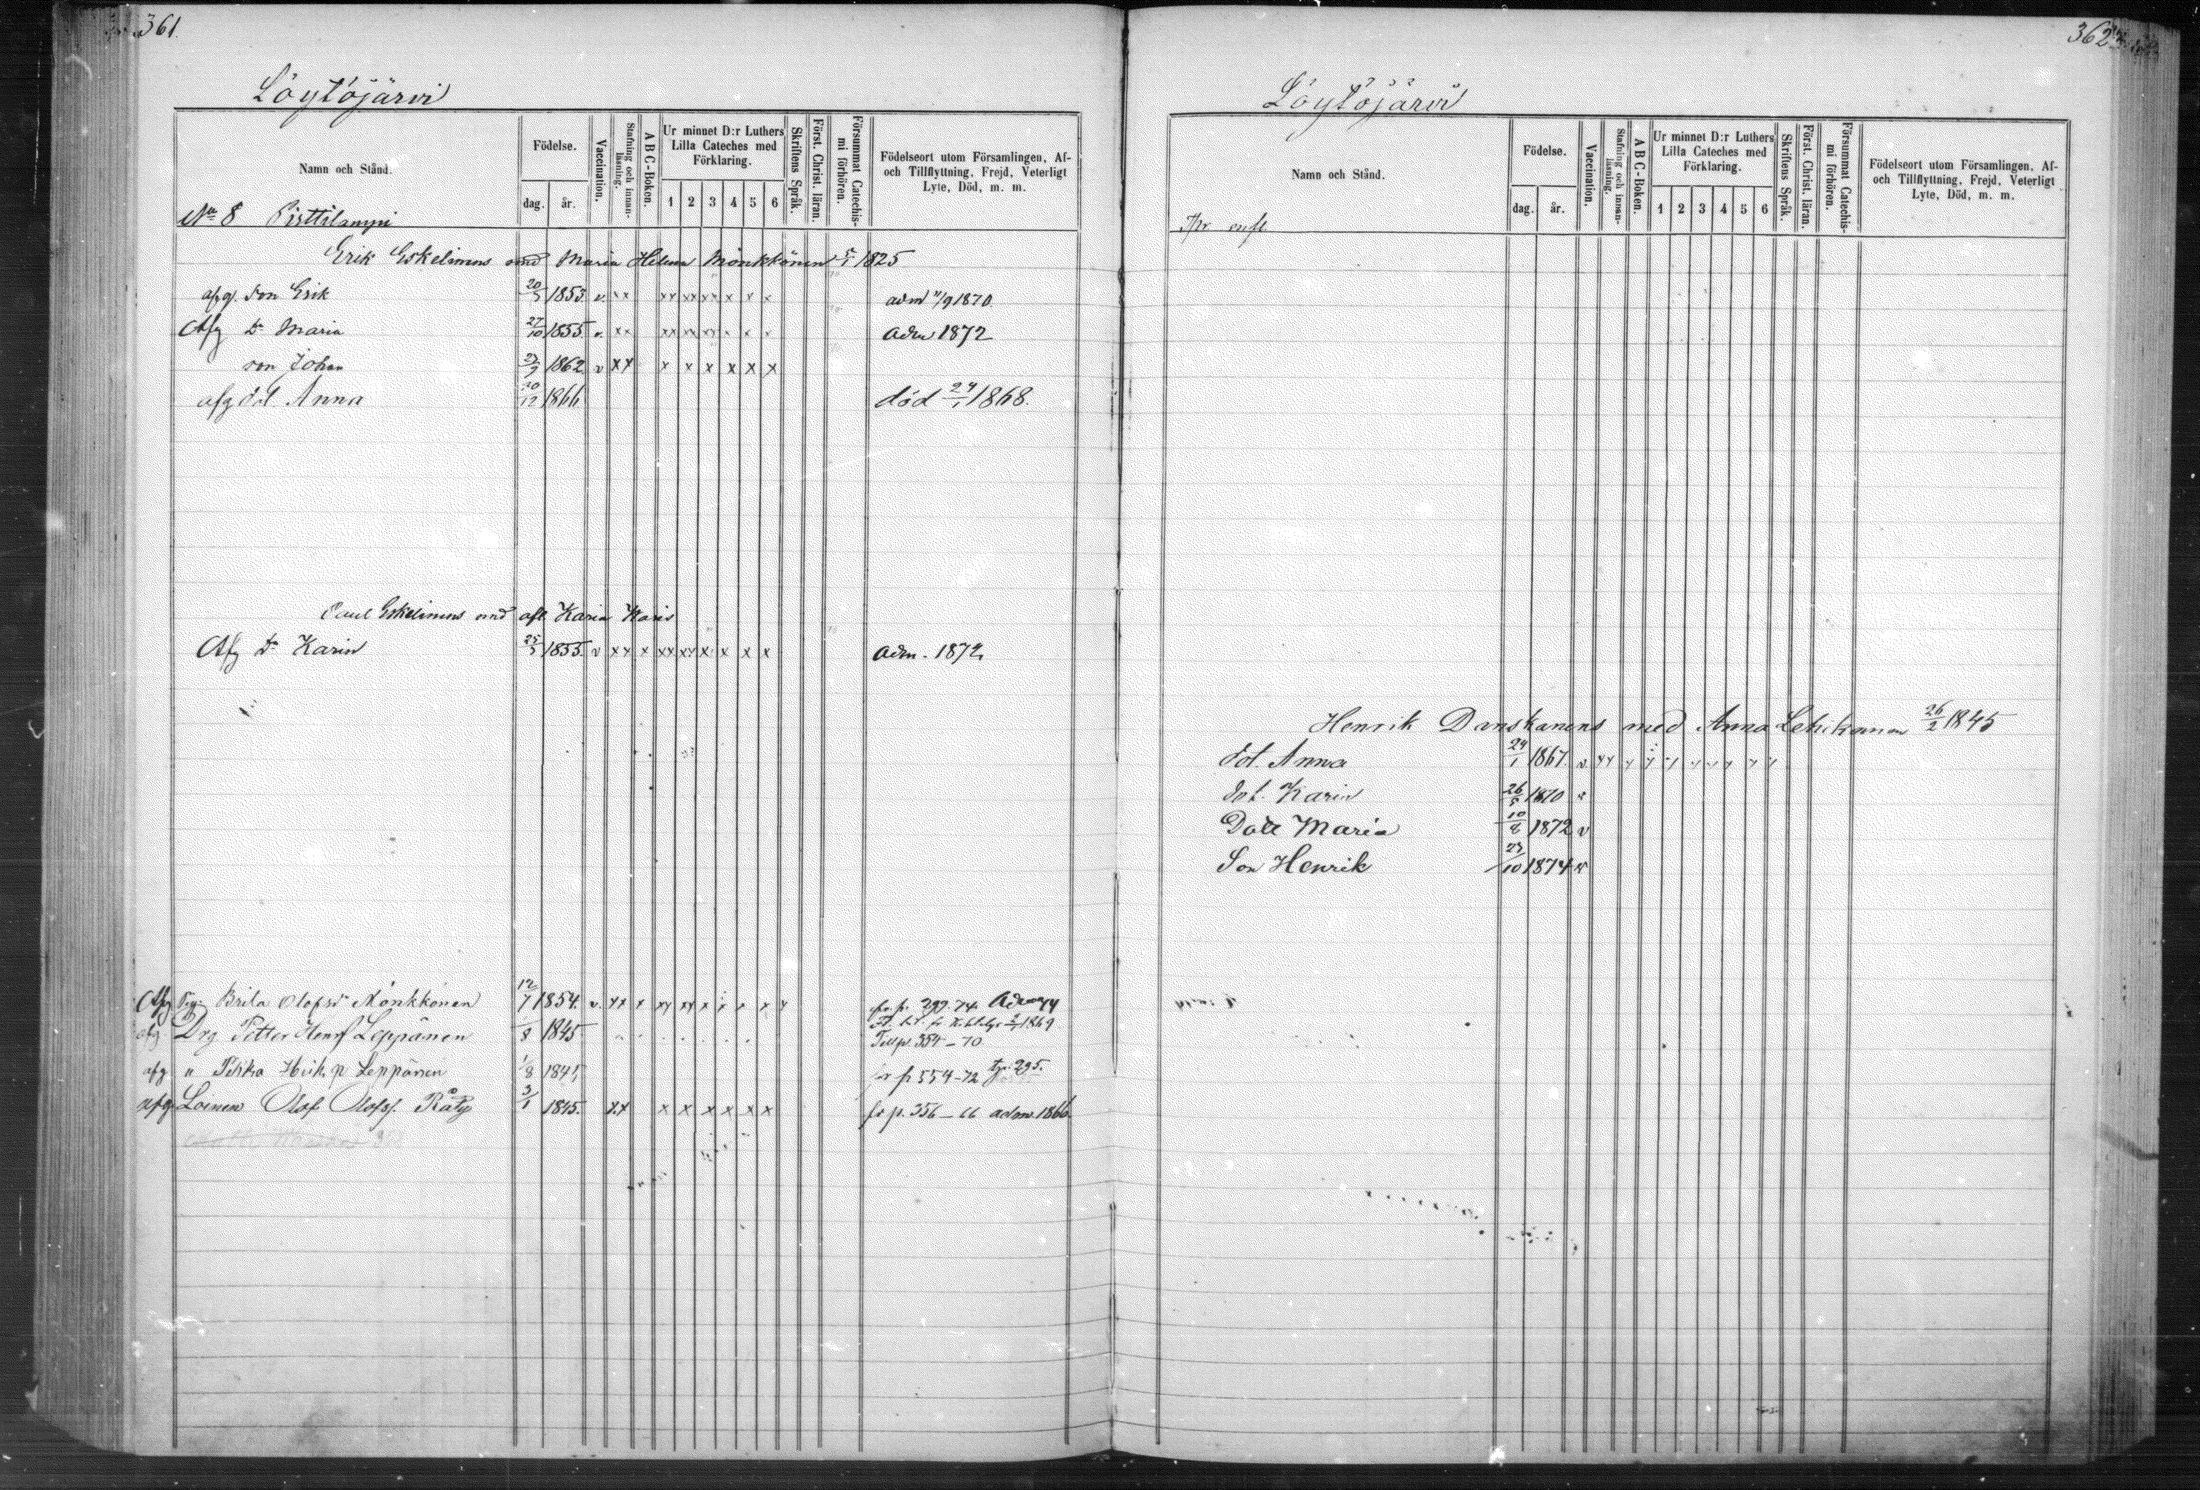 361.
Löytöjärvi
Namn och Stånd.
Födelse.
dag.
år.
Vaccination.
Stafning och innanläsning.
A B C-Boken.
Ur minnet D:r Luthers Lilla Cateches med Förklaring.
1 2 3 4 5 6
Skriftens Språk.
Först. Christ. läran.
Försummat Catechismi förhören.
Födelseort utom Församlingen, Af- och Tillflyttning, Frejd, Veterligt Lyte, Död, m. m.
No 8 Pirttilampi
Erik Eskelinens med Maria Helena Mönkkönen 5/1 1825
afg. Son Erik 20/5 1853 v. xx xx xx xx x x x adm 11/9 1870
Afg Dr Maria 27/10 1855 v. xx xx xx xx x x x adm 1872
son Johan 1862 v xx x x x x x x
afg dot Anna 20/12 1866 död 24/1 1868.
Paul Eskelinens med afl. Karin Karis
Afg Dr Karin 1855 v xx x xx xx x x x x adm. 1872
Afg Brita Olofsdr Mönkkönen 12/7 1854. v. xx x xx xx x x x x x fr p. 297-74
afg Drg Petter Henrs Leppänen /8 1845 1869
Till p. 354-70
afg " Leppänen 1/8 1845 fr p 554-72 t p. 295.
afg Loinen Olof Olofs. Räty 3/1 1845. xx x x x x x x fr p. 356-66 adm. 1866.
362
Löytöjärvi
Namn och Stånd.
Födelse.
dag.
år.
Vaccination.
Stafning och innanläsning.
A B C-Boken.
Ur minnet D:r Luthers Lilla Cateches med Förklaring.
1 2 3 4 5 6
Skriftens Språk.
Först. Christ. läran.
Försummat Catechismi förhören.
Födelseort utom Församlingen, Af- och Tillflyttning, Frejd, Veterligt Lyte, Död, m. m.
Henrik Danskanens med Anna Lehikoinen 26/2 1845
dot. Anna 24/1 1867. v
dot. Karin 26/5 1870 v
Dott Maria 10/8 1872 v
Son Henrik 27/10 1874 v